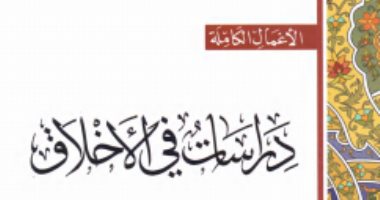 الأعمال الكاملة
دراسات في الأخلاق